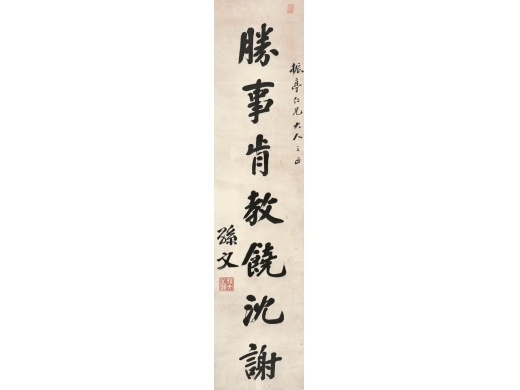 振亭仁兄大人之正
勝事肯教饒沈謝
孫文